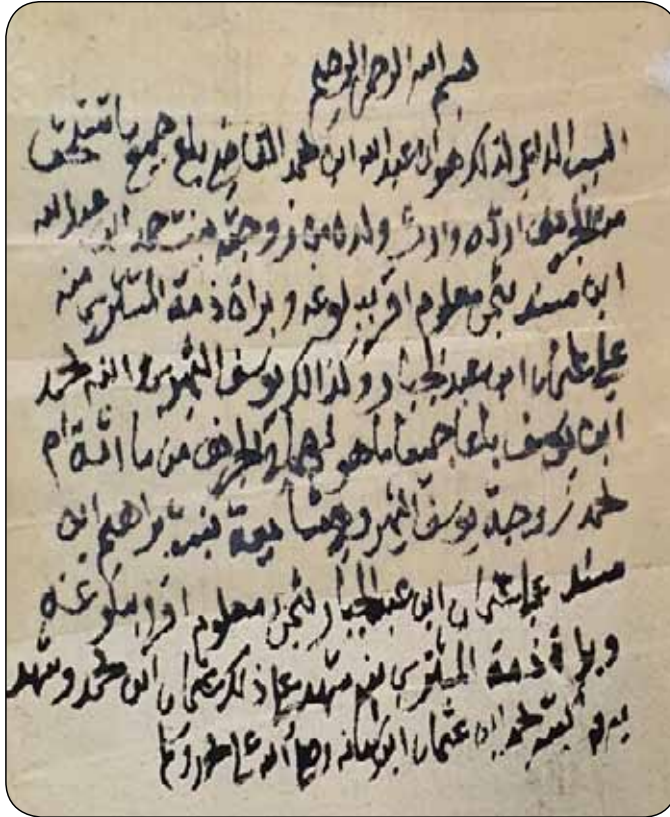 بسم الله الرحمن الرحيم
السبب الداعي لذلك هو ان عبدالله ابن حمد القاضي باع جميع ما تستحق
من ارثه وارث ولده من زوجته بنت حمد ابن عبدالله
ابن مسند بثمن معلوم اقر ببلوغه وبراة ذمة المشتري منه
على عثمان ابن عبدالجبار وكذالك يوسف النمر وابنه حمد
ابن يوسف باعا جميع ما هو لهما من ام
حمد زوجة يوسف النمر وهيئا بنت براهيم ابن
مسند على عثمان ابن عبدالجبار بثمن معلوم اقرا ببلوغه
وبراة ذمة المشتري منه شهد على ذلك عثمان ابن حمد وشهد
به وكتبه حمد ابن عثمان ابن وصلى الله على محمد